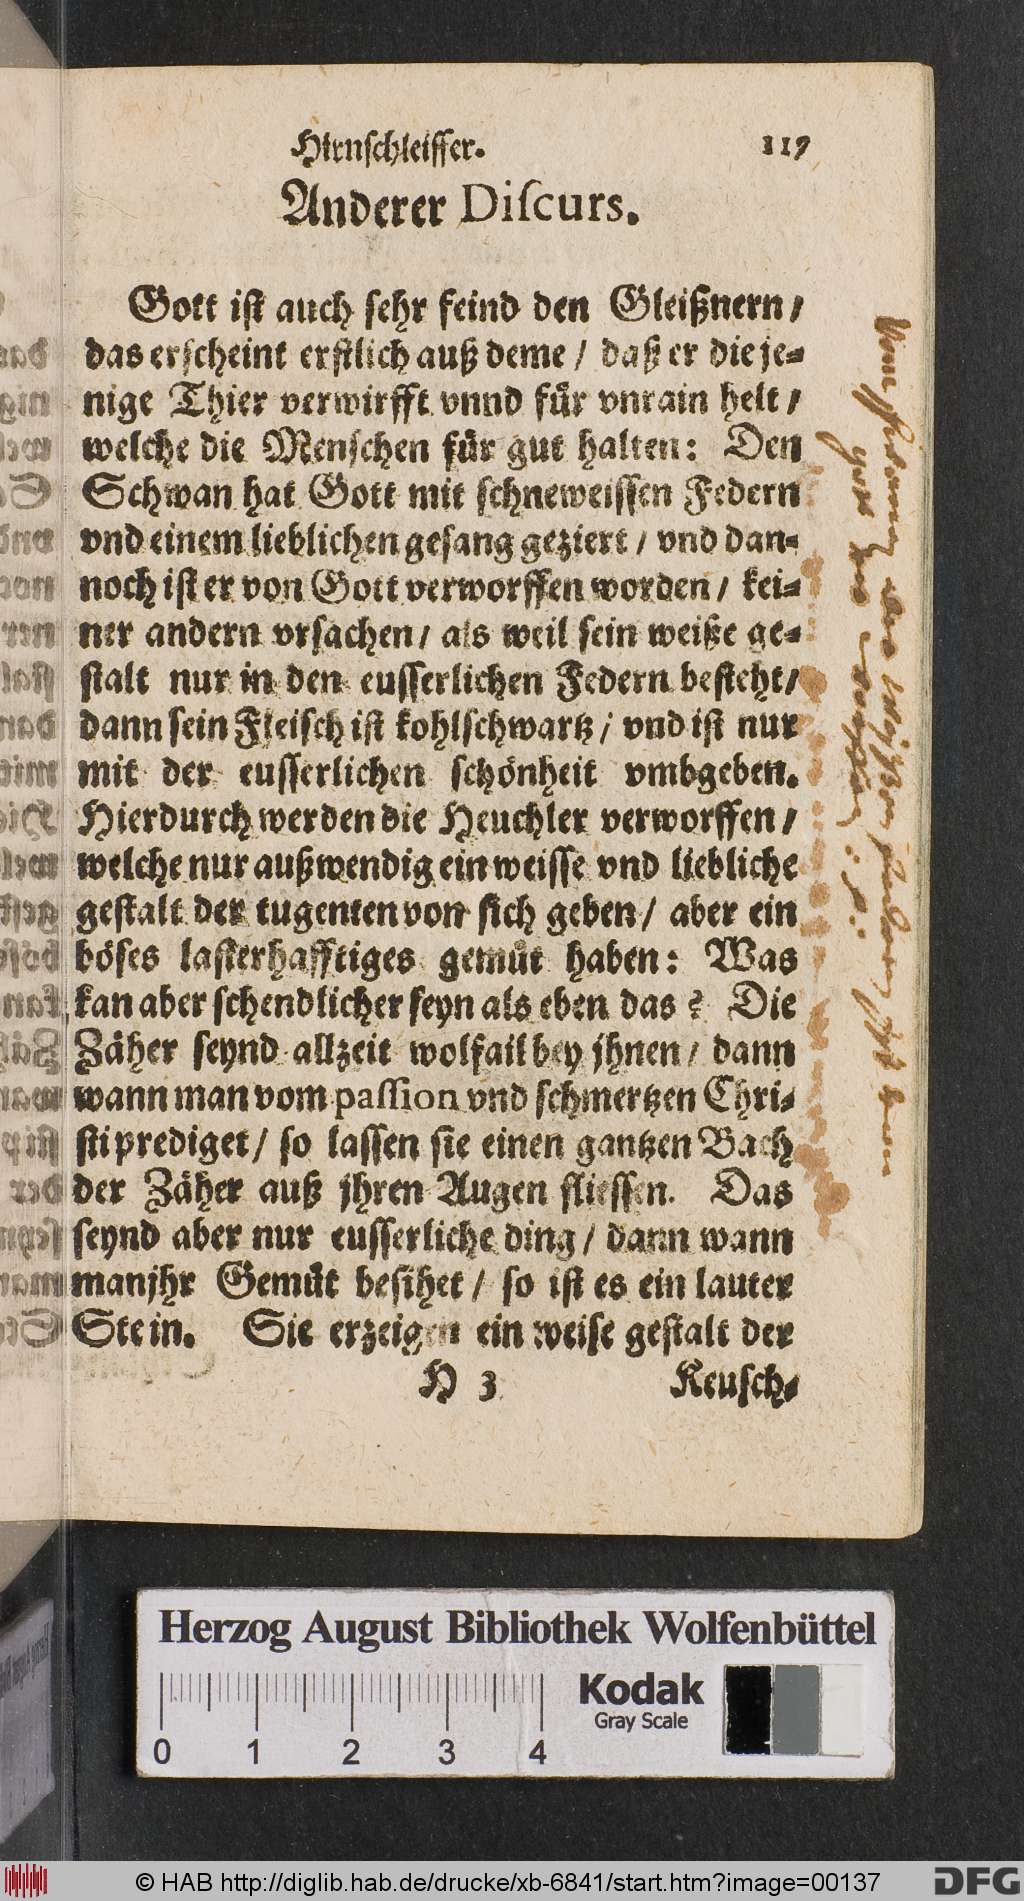 Hirnschleiffer. 117
Anderer Diſcurs.
Gott iſt auch ſehr feind den Gleißnern /
das erſcheint erſtlich auß deme / daß er die je-
nige Thier verwirfft vnnd fuͤr vnrain helt /
welche die Menſchen fuͤr gut halten: Den
Schwan hat Gott mit ſchneweiſſen Federn
vnd einem lieblichen geſang geziert / vnd dan-
noch iſt er von Gott verworffen worden / kei-
ner andern vrſachen / als weil ſein weiße ge-
ſtalt nur in den euſſerlichen Federn beſteht /
dann ſein Fleiſch iſt kohlſchwartz / vnd iſt nur
mit der euſſerlichen ſchoͤnheit vmbgeben.
Hierdurch werden die Heuchler verworffen /
welche nur außwendig ein weiſſe vnd liebliche
geſtalt der tugenten von ſich geben / aber ein
boͤſes laſterhafftiges gemuͤt haben: Was
kan aber ſchendlicher ſeyn als eben das? Die
Zaͤher ſeynd allzeit wolfail bey jhnen / dann
wann man vom paſſion vnd ſchmertzen Chri-
ſti prediget / ſo laſſen ſie einen gantzen Bach
der Zaͤher auß jhren Augen flieſſen. Das
ſeynd aber nur euſſerliche ding / dann wann
man jhr Gemuͤt beſihet / ſo iſt es ein lauter
Stein. Sie erzeigen ein weiſe geſtalt der
H 3 Keuſch-
Herzog August Bibliothek Wolfenbüttel
Kodak
Gray Scale
0 1 2 3 4
© HAB http://diglib.hab.de/drucke/xb-6841/start.htm?image=00137
DFG